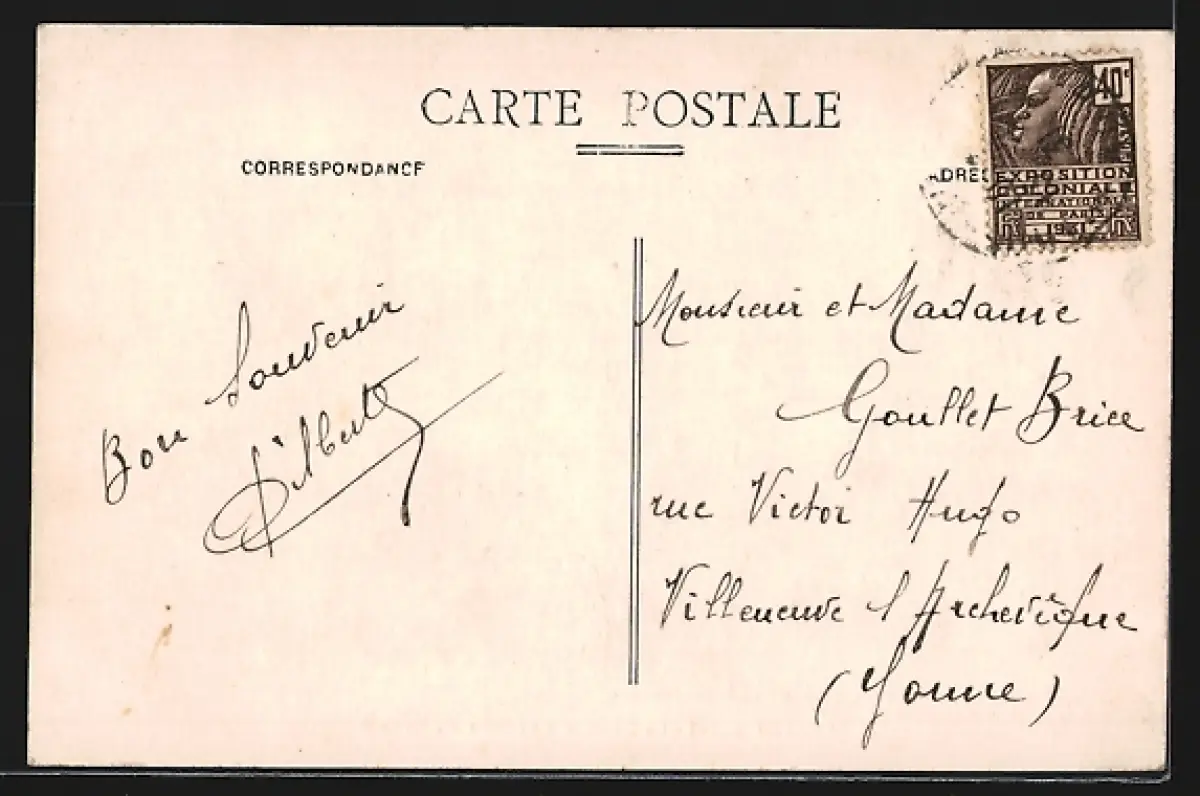 CARTE POSTALE
CORRESPONDANCE
ADRES
40c
POSTES
EXPOSITION
COLONIALE
INTERNATIONALE
DE PARIS
1931
Bon Souvenir
Gilberte
Monsieur et Madame
Goullet Brice
rue Victor Hugo
Villeneuve l'Archevêque
(Yonne)